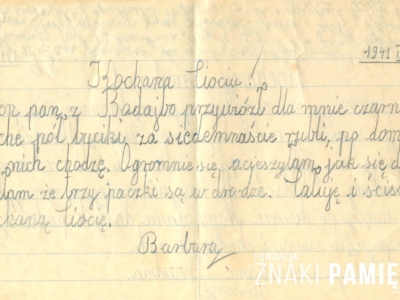 1941
Kochana Ciociu!
pan z Badajbo przywiózł dla mnie czarn
che pół buciki, za siedemnaście rubli, po dom
nich chodzę. Ogromnie się ucieszyłam jak się d
łam że trzy paczki są w drodze. Całuję i ścisk
chaną Ciocię.
Barbura
FUNDACJA
ZNAKI PAMIĘ